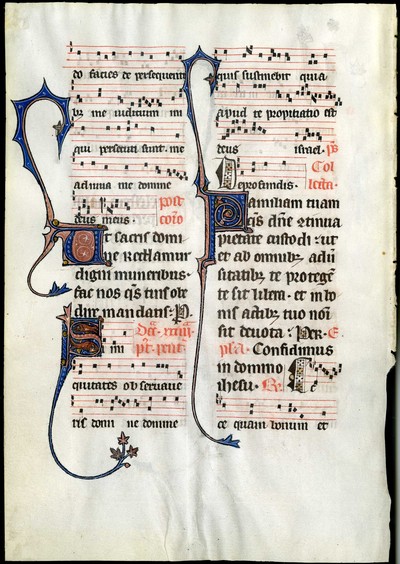 do facies de persequenti
bz me iudicium im
qui persecuti sunt me
adiuua me domine
deus meus. post
co&#772;io
Ut sacris domi
ne reddamur
digni muneribus.
fac nos q̃s tuis obe
dire mandatis. P
Si Dca. xxiii.
im pt. pent.
quitates obseruaue
ris domine domine
quis sustinebit quia
apud te propitiatio est
deus israel. ps
Deprofundis. Col
lecta.
Familiam tuam
q̃s dñe gtinua
pietate custodi. ut
et ab omnibz adu
sitatibz te protegẽ
te sit libera. et in bo
nis actibz tuo noĩ
sit deuota. Per. E
pl̃a. Confidimus
in domino
ihesu. R. E c
ce quam bonum et